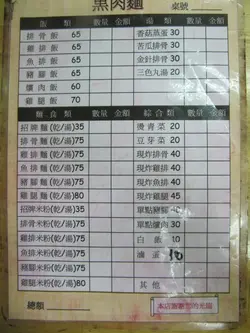 黑肉麵 桌號
飯類 數量 金額 湯類 數量 金額
排骨飯 65 香菇蒸蛋 30
雞排飯 65 苦瓜排骨 30
魚排飯 65 金針排骨 30
豬腳飯 65 三色丸湯 20
爌肉飯 60
雞腿飯 70
麵食類 數量 金額 綜合類 數量 金額
招牌麵(乾/湯)35 燙青菜 20
排骨麵(乾/湯)75 豆芽菜 20
雞排麵(乾/湯)75 現炸排骨 40
魚排麵(乾/湯)75 現炸雞排 40
豬腳麵(乾/湯)75 現炸魚排 40
雞腿麵(乾/湯)80 現炸雞腿 45
招牌米粉(乾/湯)35 單點豬腳 40
排骨米粉(乾/湯)75 單點爌肉 30
雞排米粉(乾/湯)75 白飯 10
魚排米粉(乾/湯)75 滷蛋 10
豬腳米粉(乾/湯)75
雞腿米粉(乾/湯)80 其他
總額